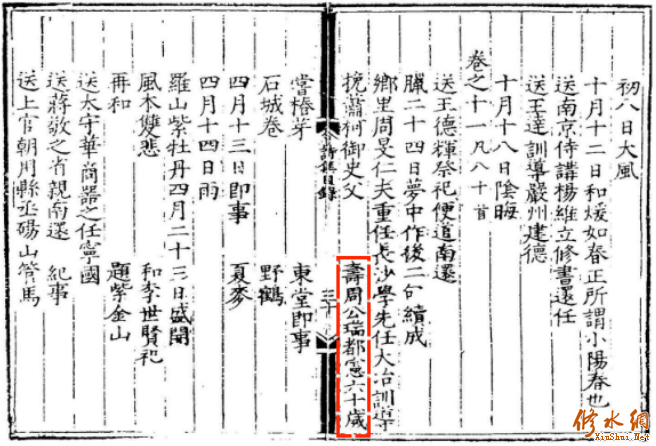 初八日大風
十月十二日和煖如春正所謂小陽春也
送南京侍講楊維立修書還任
送王達訓導嚴州建德
十月十八日陰晦
卷之十一凡八十首
送王德輝祭祀便道南還
臘二十四日夢中作後二句續成
鄉里周旻仁夫重任長沙學先任大冶訓導
挽蕭柯御史父 壽周公瑞都憲六十歲
詩集目錄 三十
嘗椿芽 東堂即事
石城卷 野鶴
四月十三日即事 夏麥
四月十四日雨
羅山紫牡丹四月二十三日盛開
風木雙悲 和李世賢祀
再和 題紫金山
送太守華商器之任寧國
送蔣敬之省親南還 紀事
送上官朝用縣丞碭山管馬
修水網
XiuShui.Net